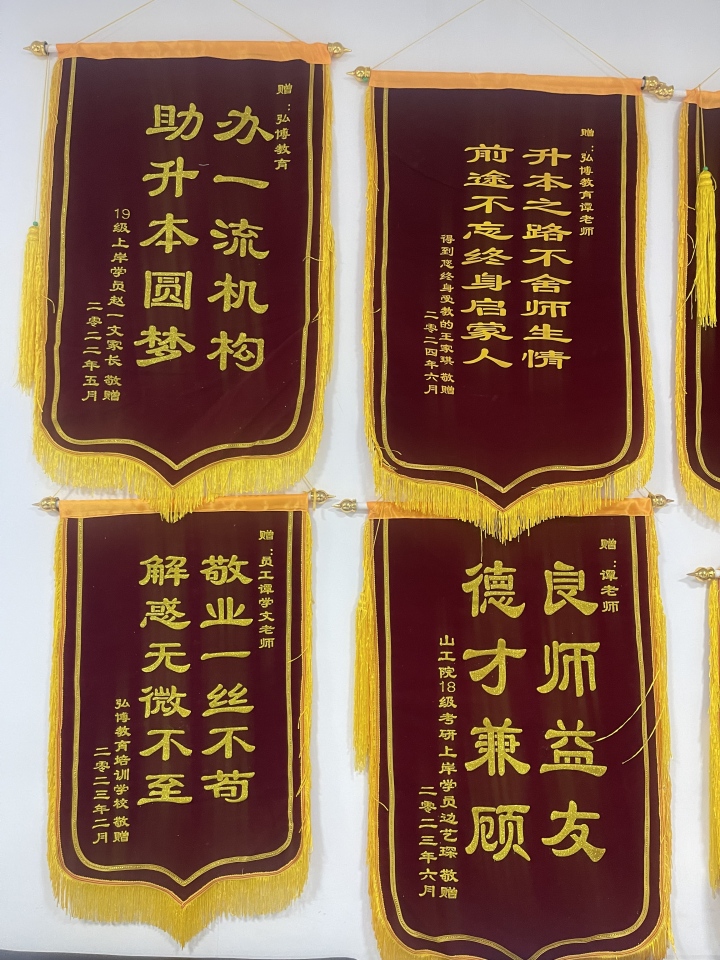 赠：弘博教育
办一流机构
助升本圆梦
19级上岸学员赵一文家长 敬赠
二零二二年五月
赠：弘博教育谭老师
升本之路不舍师生情
前途不忘终身启蒙人
得到您终身受教的王家琪 敬赠
二零二四年六月
赠：员工谭学文老师
敬业一丝不苟
解惑无微不至
弘博教育培训学校 敬赠
二零二三年二月
赠：谭老师
良师益友
德才兼顾
山工院18级考研上岸学员边艺琛 敬赠
二零二三年六月